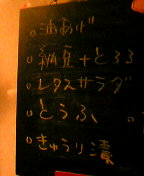 。油あげ
。納豆+とろろ
。レタスサラダ
。とうふ 〃
。きゅうり漬